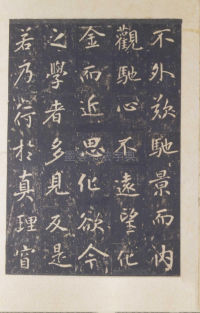 不外欻馳景而内
觀馳心不遠望化
金而近思化欲今
之學者多見反是
若乃行於真理官